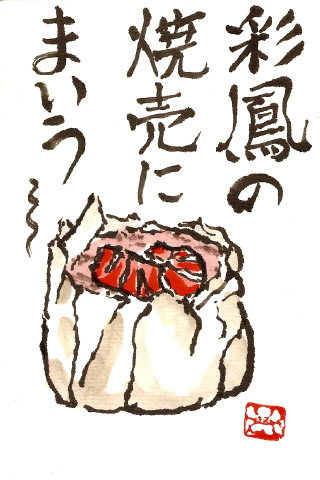 彩鳳の
焼売に
まいう〜〜